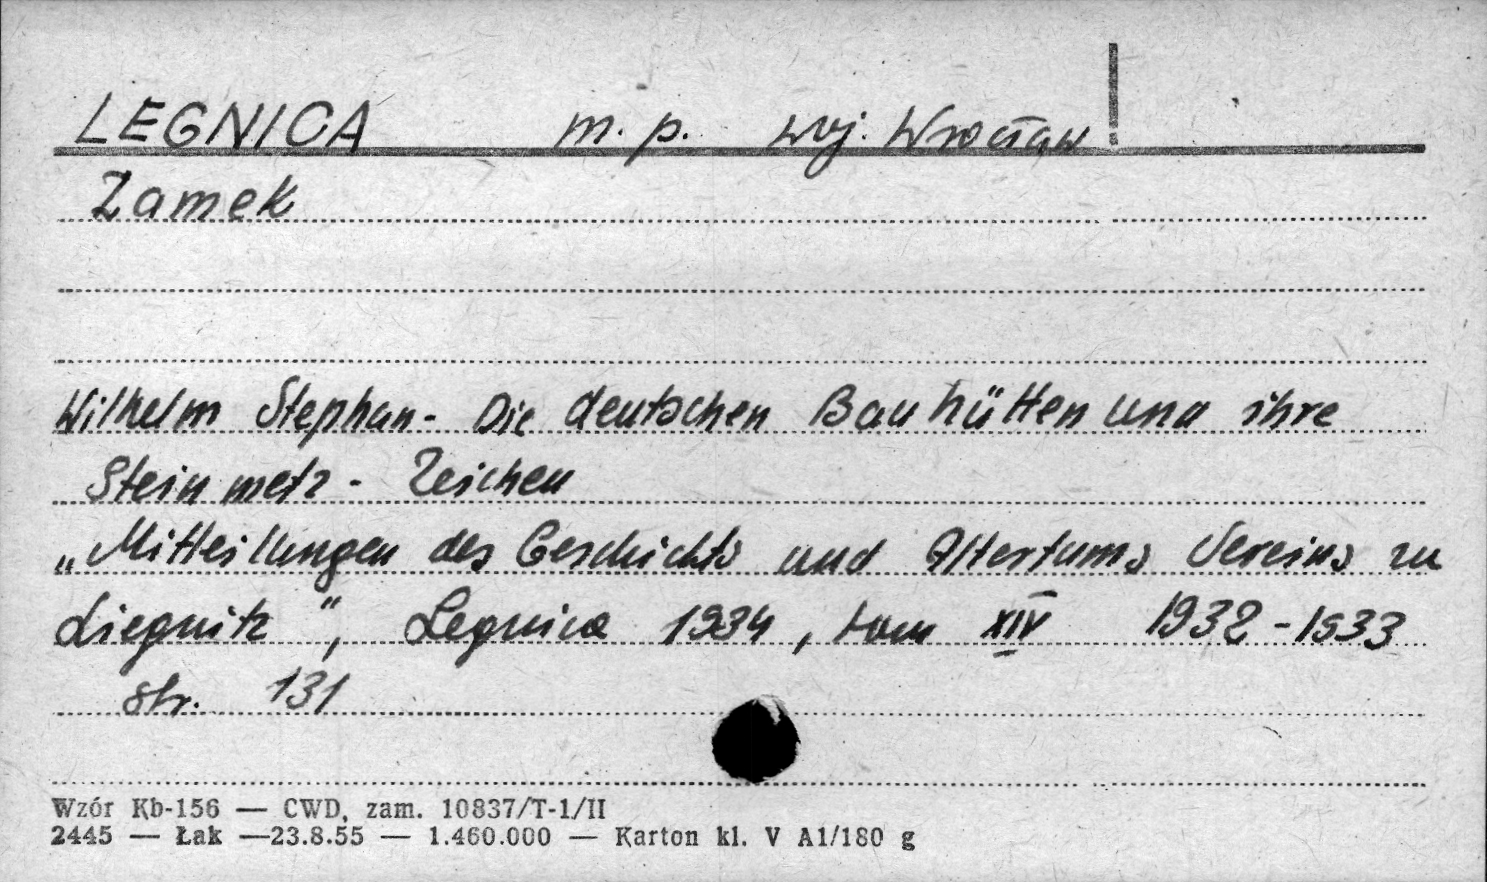 LEGNICA m. p. woj. Wrocław
Zamek
Wilhelm Stephan - Die deutschen Bauhütten und ihre
Steinmetz - Zeichen
„Mitteilungen des Geschichts und Altertums Vereins zu
Liegnitz", Legnica 1934, tom XIV 1932-1933
str. 131
Wzór Kb-156 — CWD, zam. 10837/T-1/II
2445 — Łak —23.8.55 — 1.460.000 — Karton kl. V A1/180 g